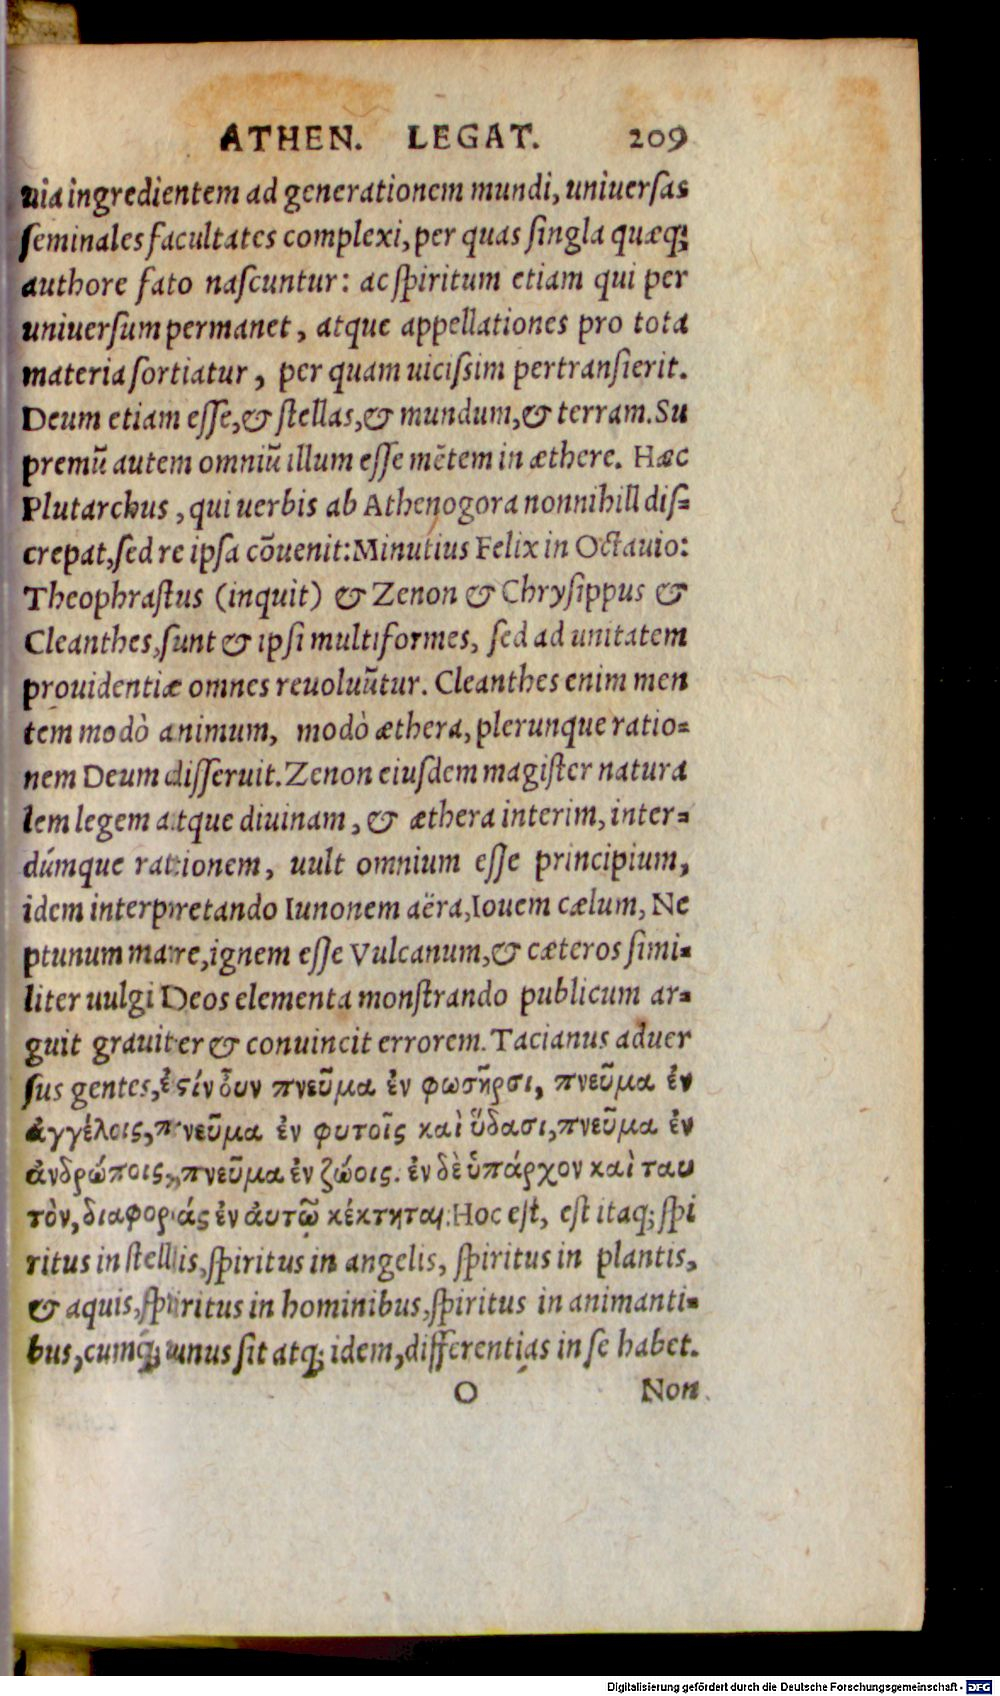 ATHEN. LEGAT. 209
uia ingredientem ad generationem mundi, uniuerſas
ſeminales facultates complexi, per quas ſingla quæq;
authore fato naſcuntur: ac ſpiritum etiam qui per
uniuerſum permanet, atque appellationes pro tota
materia ſortiatur, per quam uiciſsim pertranſierit.
Deum etiam eſſe, & ſtellas, & mundum, & terram. Su
premũ autem omniũ illum eſſe mẽtem in æthere. Hæc
Plutarchus, qui uerbis ab Athenogora nonnihill diſ-
crepat, ſed re ipſa cõuenit: Minutius Felix in Octauio:
Theophraſtus (inquit) & Zenon & Chryſippus &
Cleanthes, ſunt & ipſi multiformes, ſed ad unitatem
prouidentiæ omnes reuoluũtur. Cleanthes enim men
tem modò animum, modò æthera, plerunque ratio-
nem Deum diſſeruit. Zenon eiuſdem magiſter natura
lem legem atque diuinam, & æthera interim, inter-
dúmque rationem, uult omnium eſſe principium,
idem interpretando Iunonem aëra, Iouem cælum, Ne
ptunum mare, ignem eſſe Vulcanum, & cæteros ſimi-
liter uulgi Deos elementa monſtrando publicum ar-
guit grauiter & conuincit errorem. Tacianus aduer
ſus gentes, ἐϛίν ὀυν πνεῦμα ἐν φωσῆρσι, πνεῦμα ἐν
ἀγγέλοις, πνεῦμα ἐν φυτοῖς καὶ ὕδασι, πνεῦμα ἐν
ἀνδρώποις, πνεῦμα ἐν ζώοις. ἐν δὲ ὑπάρχον καὶ ταυ
τὸν, διαφοράς ἐν ἀυτῷ κέκτηται: Hoc eſt, eſt itaq; ſpi
ritus in ſtellis, ſpiritus in angelis, ſpiritus in plantis,
& aquis, ſpiritus in hominibus, ſpiritus in animanti-
bus, cumq́; unus ſit atq; idem, differentias in ſe habet.
O Non
Digitalisierung gefördert durch die Deutsche Forschungsgemeinschaft - DFG